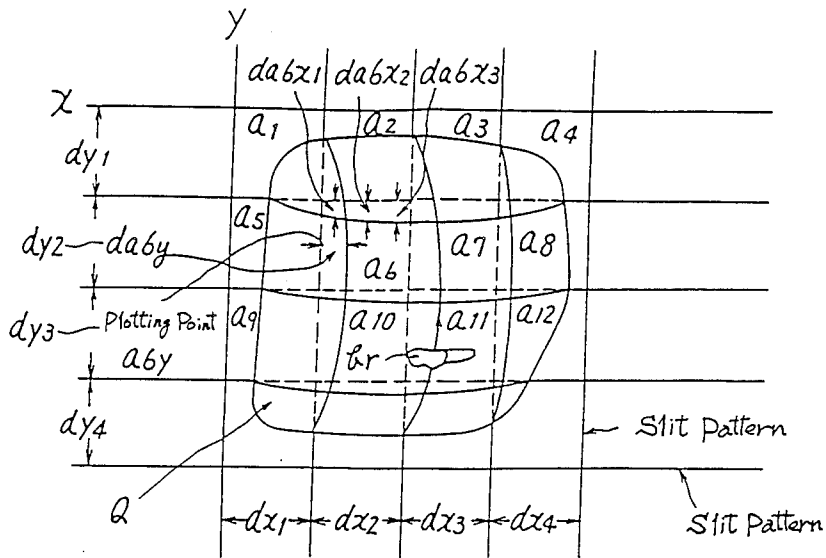 y
da6x1 da6x2 da6x3
x
a1 a2 a3 a4
dy1
a5 a7 a8
dy2 da6y
a6
dy3 Plotting Point a9 a10 a11 a12
a6y
br
dy4
Slit Pattern
Q
dx1 dx2 dx3 dx4
Slit Pattern